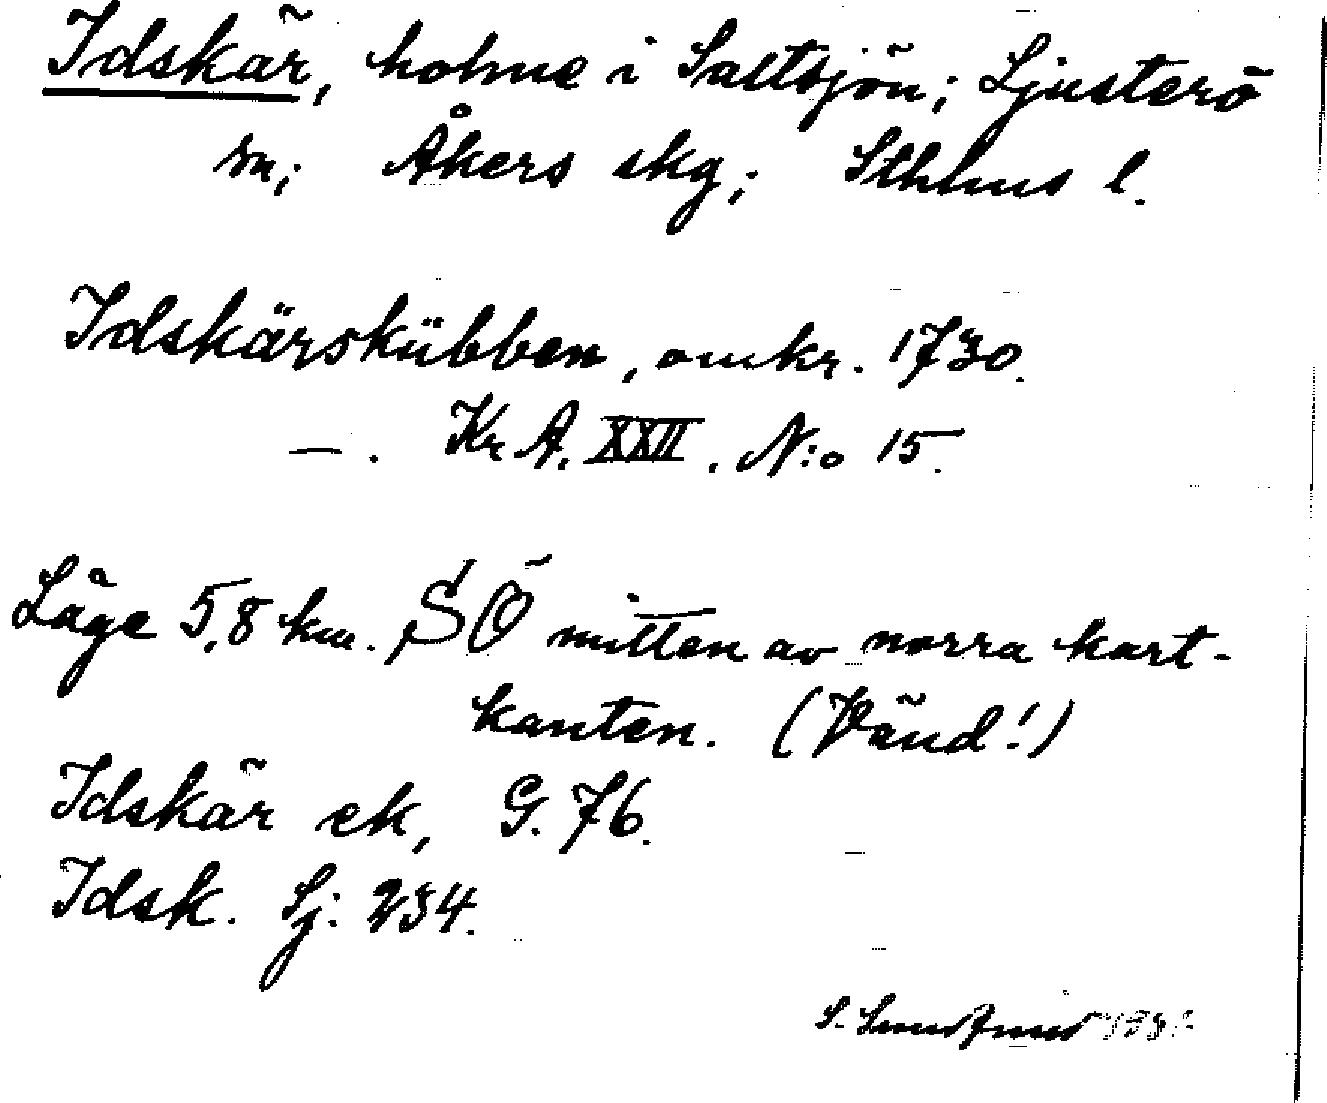 Idskär, holme i Saltsjön; Ljusterö
sn; Åkers skg; Sthlms l.
Idskärskübben, omkr. 1730.
—. Kr A. XXII. N:o 15.
Läge 5,8 km. SÖ mitten av norra kart-
kanten. (Vänd!)
Idskär ek, G. 76.
Idsk. Sj: 234.
S.